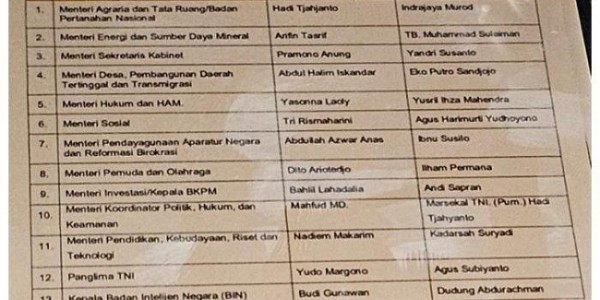 1. Menteri Agraria dan Tata Ruang/Badan Hadi Tjahjanto Indrajaya Murod
Pertanahan Nasional
2. Menteri Energi dan Sumber Daya Mineral Arifin Tasrif TB. Muhammad Sulaiman
3. Menteri Sekretaris Kabinet Pramono Anung Yandri Susanto
4. Menteri Desa, Pembangunan Daerah Abdul Halim Iskandar Eko Putro Sandjojo
Tertinggal dan Transmigrasi
5. Menteri Hukum dan HAM. Yasonna Laoly Yusril Ihza Mahendra
6. Menteri Sosial Tri Rismaharini Agus Harimurti Yudhoyono
7. Menteri Pendayagunaan Aparatur Negara Abdullah Azwar Anas Ibnu Susilo
dan Reformasi Birokrasi
8. Menteri Pemuda dan Olahraga Dito Ariotedjo Ilham Permana
9. Menteri Investasi/Kepala BKPM Bahlil Lahadalia Andi Sapran
10. Menteri Koordinator Politik, Hukum, dan Mahfud MD. Marsekal TNI, (Purn.) Hadi
Keamanan Tjahyanto
11. Menteri Pendidikan, Kebudayaan, Riset dan Nadiem Makarim Kadarsah Suryadi
Teknologi
12. Panglima TNI Yudo Margono Agus Subiyanto
13. Kepala Badan Intelijen Negara (BIN) Budi Gunawan Dudung Abdurachman